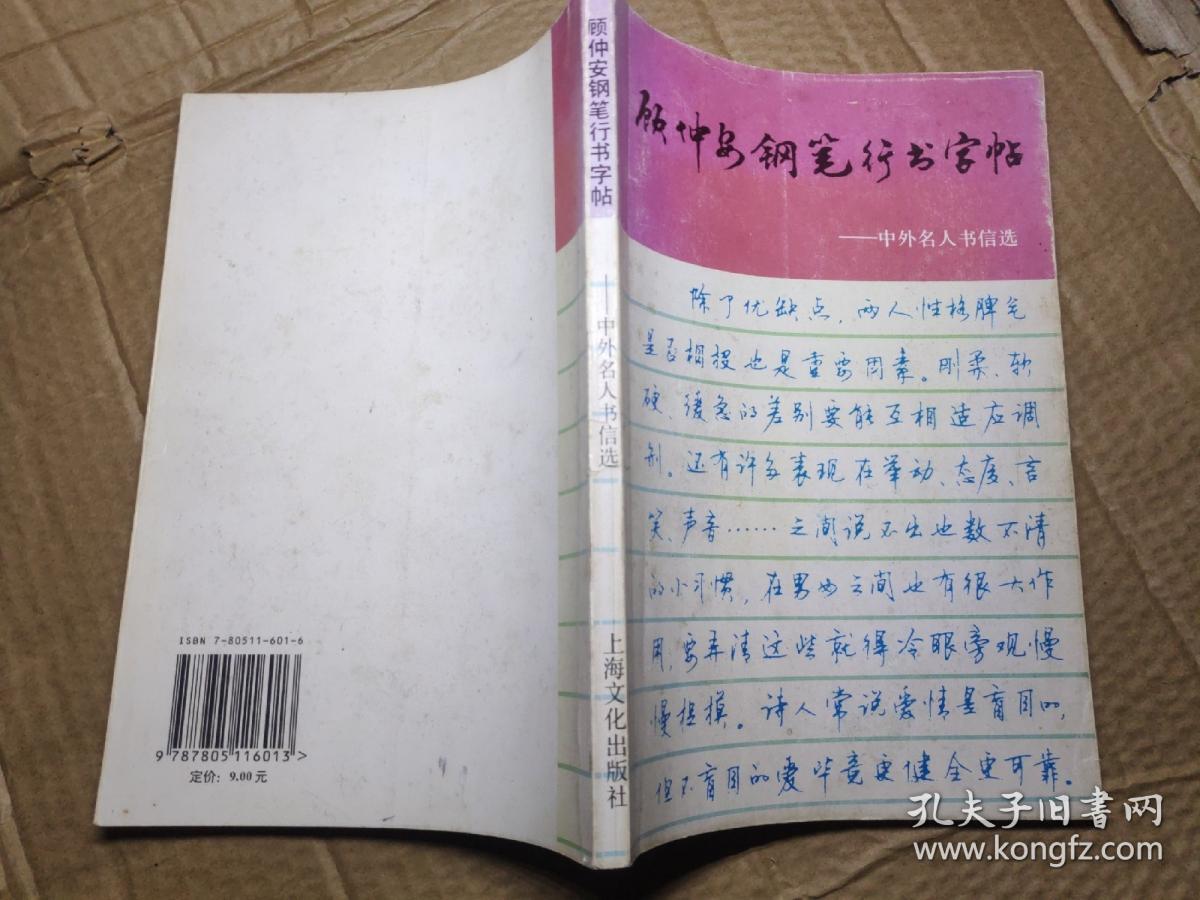 顾仲安钢笔行书字帖
——中外名人书信选
除了优缺点，两人性格脾气
是否相投也是重要因素。刚柔、软
硬、缓急的差别要能互相适应调
剂。还有许多表现在举动、态度、言
笑、声音……之间说不出也数不清
的小习惯，在男女之间也有很大作
用，要弄清这些就得冷眼旁观慢
慢揣摸。诗人常说爱情是盲目的，
但不盲目的爱毕竟更健全更可靠。
顾仲安钢笔行书字帖
——中外名人书信选
上海文化出版社
ISBN 7-80511-601-6
9 787805 116013 >
定价：9.00元
孔夫子旧书网
www.kongfz.com